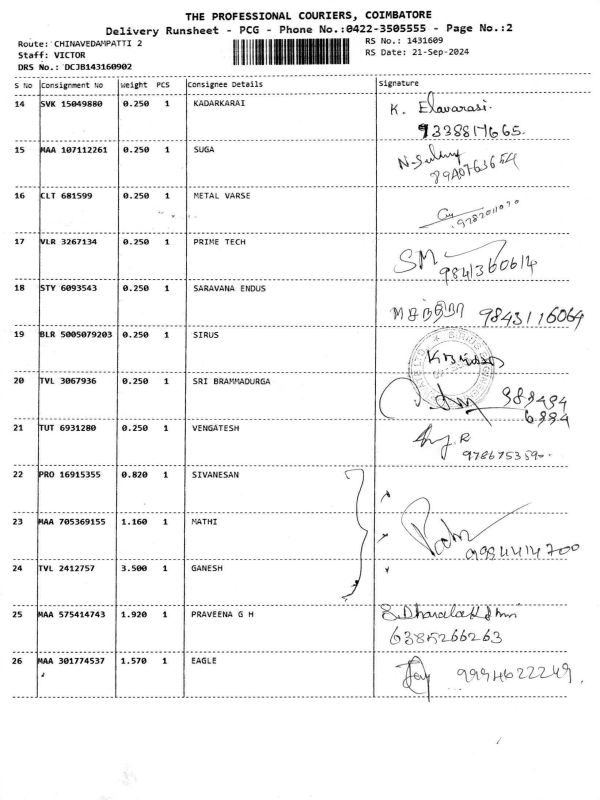 THE PROFESSIONAL COURIERS, COIMBATORE
Delivery Runsheet - PCG - Phone No.:0422-3505555 - Page No.:2
Route: CHINAVEDAMPATTI 2
RS No.: 1431609
Staff: VICTOR
RS Date: 21-Sep-2024
DRS No.: DCJB143160902
S No Consignment No Weight PCS Consignee Details Signature
14 SVK 15049880 0.250 1 KADARKARAI K. Elavarasi.
9338817665
15 MAA 107112261 0.250 1 SUGA
16 CLT 681599 0.250 1 METAL VARSE
17 VLR 3267134 0.250 1 PRIME TECH SM
9841360614
18 STY 6093543 0.250 1 SARAVANA ENDUS
9843116064
19 BLR 5005079203 0.250 1 SIRUS
20 TVL 3067936 0.250 1 SRI BRAMMADURGA
989494
6994
21 TUT 6931280 0.250 1 VENGATESH
9786753590
22 PRO 16915355 0.820 1 SIVANESAN
23 MAA 705369155 1.160 1 MATHI
9994414700
24 TVL 2412757 3.500 1 GANESH
25 MAA 575414743 1.920 1 PRAVEENA G H
6385266263
26 MAA 301774537 1.570 1 EAGLE 9994622249